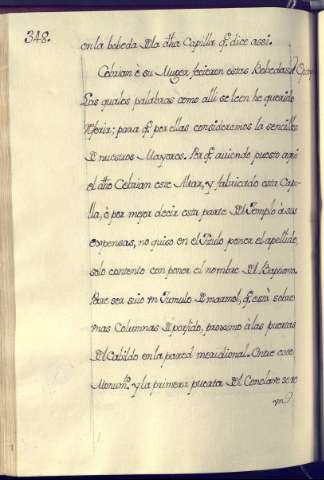 348.
en la bobeda D la dha Capilla q̃ dice assi.
Cebrian è su Muger fecieron estas Bobedas.
Las quales palabras como alli se leen he querido
referir; para q̃ por ellas consideremos la sencillez
D nuestros Mayores. Por q̃ auiendo puesto aqui
el dho Cebrian este Altar, y fabricado esta Capi-
lla, ò por mejor decir esta parte Del Templo à sus
expensas, no quiso en el Titulo poner el apellido,
solo contento con poner el nombre Del Baptismo.
Pare ser suio vn Tumulo D marmol, q̃ està sobre
vnas Columnas D porfido, proximo à las puertas
Del Cabildo en la pared meridional. Entre este
Monumto. y la primera puerta Del Conclave se ve
vn